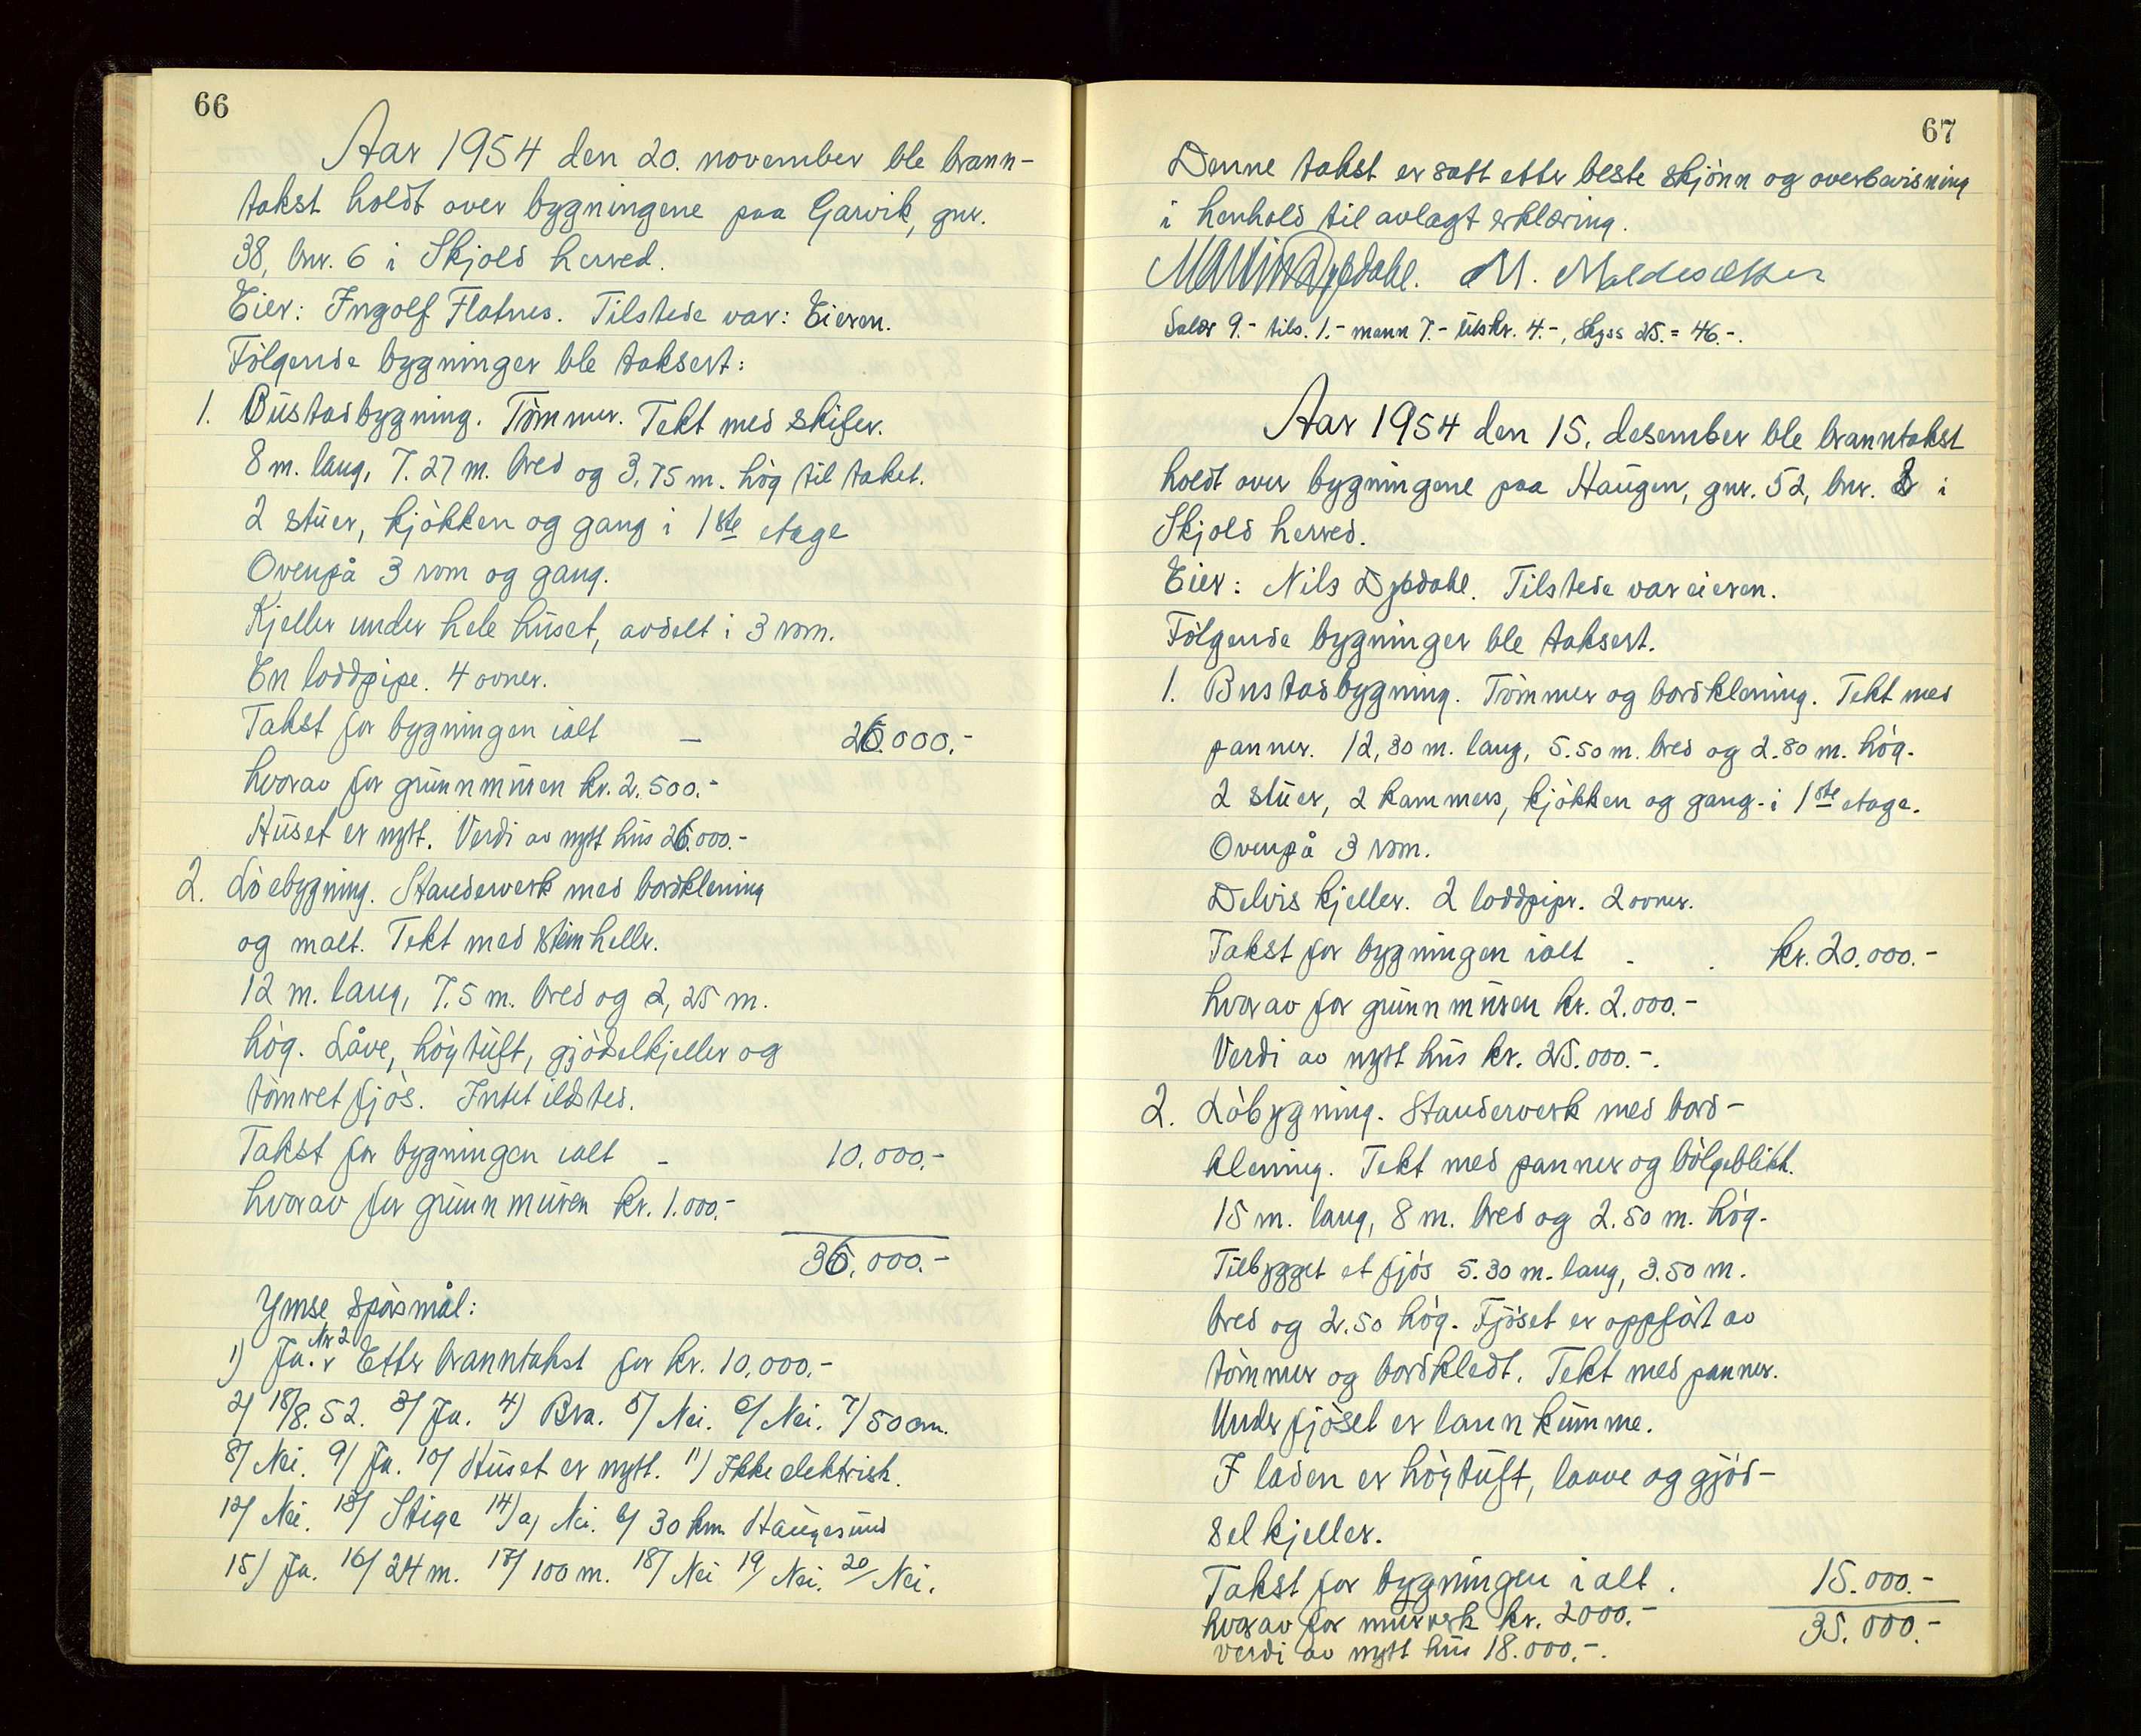 66
Aar 1954 den 20. november ble brann-
takst holdt over bygningene paa Garvik, gnr.
38, bnr. 6 i Skjold herred.
Eier: Ingolf Flatnes. Tilstede var: Eieren.
Følgende bygninger ble taksert:
1. Bustadbygning. Tømmer. Tekt med skifer.
8 m. lang, 7.27 m. bred og 3,75 m. høg til taket.
2 stuer, kjøkken og gang i 1ste etage
Ovenpå 3 rom og gang.
Kjeller under hele huset, avdelt i 3 rom.
En loddpipe. 4 ovner.
Takst for bygningen ialt - 26.000.-
hvorav for grunnmuren kr. 2.500.-
Huset er nytt. Verdi av nytt hus 26.000.-
2. Løebygning. Standerverk med bordklening
og malt. Tekt med steinheller.
12 m. lang, 7.5 m. bred og 2,25 m.
høg. Låve, høytuft, gjødelkjeller og
tømret fjøs. Intet ildsted.
Takst for bygningen ialt - 10.000.-
hvorav for grunnmuren kr. 1.000.-
36.000.-
Ymse spøsmål:
1) Ja. Nr 2 Etter branntakst for kr. 10.000.-
2) 18/8. 52. 3) Ja. 4) Bra. 5) Nei. 6) Nei. 7) 50 cm.
8) Nei. 9) Ja. 10) Huset er nytt. 11) Ikke elektrisk.
12) Nei. 13) Stige 14) a) Nei. b) 30 km Haugesund
15) Ja. 16) 24 m. 17) 100 m. 18) Nei 19) Nei. 20) Nei.
67
Denne takst er satt etter beste skjønn og overbevisning
i henhold til avlagt erklæring.
Martin Dypdahl. M. Moldesæther
Salær 9.- tils. 1.- mann 7.- utskr. 4.-, Skyss 25. = 46.-.
Aar 1954 den 15. desember ble branntakst
holdt over bygningene paa Haugen, gnr. 52, bnr. 2 i
Skjold herred.
Eier: Nils Dypdahl. Tilstede var eieren.
Følgende bygninger ble taksert.
1. Bustadbygning. Tømmer og bordklening. Tekt med
panner. 12,30 m. lang, 5.50 m. bred og 2.80 m. høg.
2 stuer, 2 kammers, kjøkken og gang i 1ste etage.
Ovenpå 3 rom.
Delvis kjeller. 2 loddpiper. 2 ovner.
Takst for bygningen ialt - . kr. 20.000.-
hvorav for grunnmuren kr. 2.000.-
Verdi av nytt hus kr. 25.000.-.
2. Løbygning. Standerverk med bord-
klening. Tekt med panner og bølgeblikk.
15 m. lang, 8 m. bred og 2.50 m. høg.
Tilbygget et fjøs 5.30 m. lang, 3.50 m.
bred og 2.50 høg. Fjøset er oppført av
tømmer og bordkledt. Tekt med panner.
Under fjøset er lannkumme.
I laden er høytuft, laave og gjød-
selkjeller.
Takst for bygningen ialt . 15.000.-
hvorav for murverk kr. 2000.- 35.000.-
Verdi av nytt hus 18.000.-.